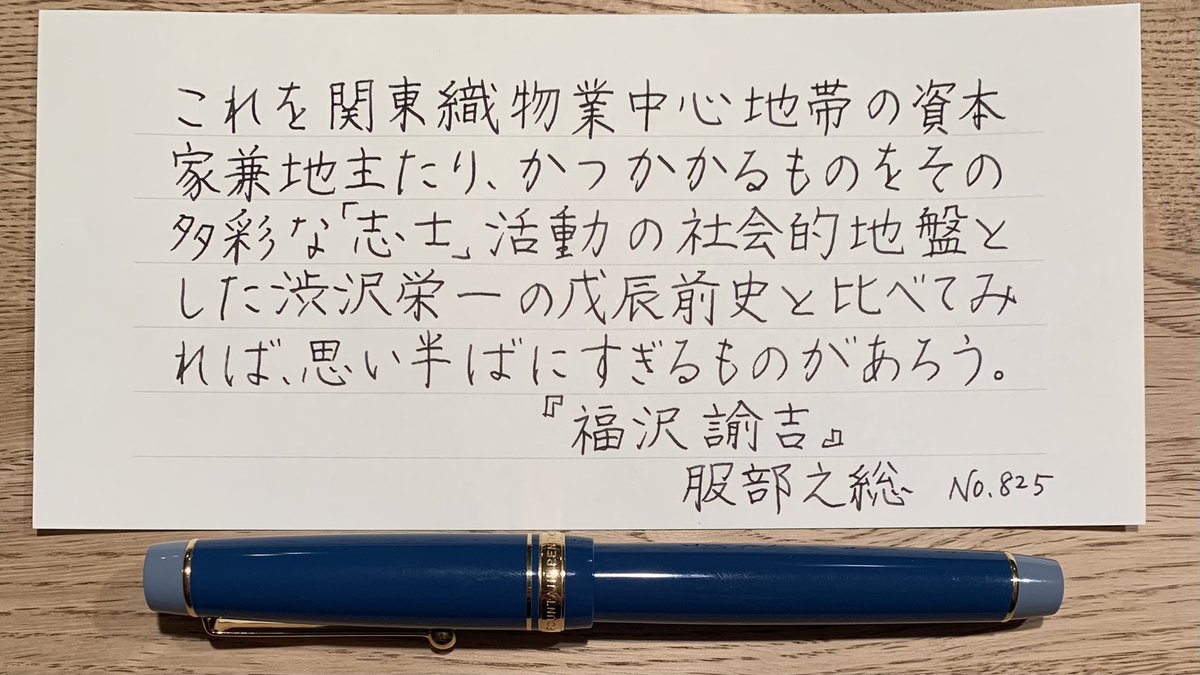 これを関東織物業中心地帯の資本
家兼地主たり、かつかかるものをその
多彩な「志士」活動の社会的地盤と
した渋沢栄一の戊辰前史と比べてみ
れば、思い半ばにすぎるものがあろう。
『福沢諭吉』
服部之総 No.825
FOUNTAIN PEN